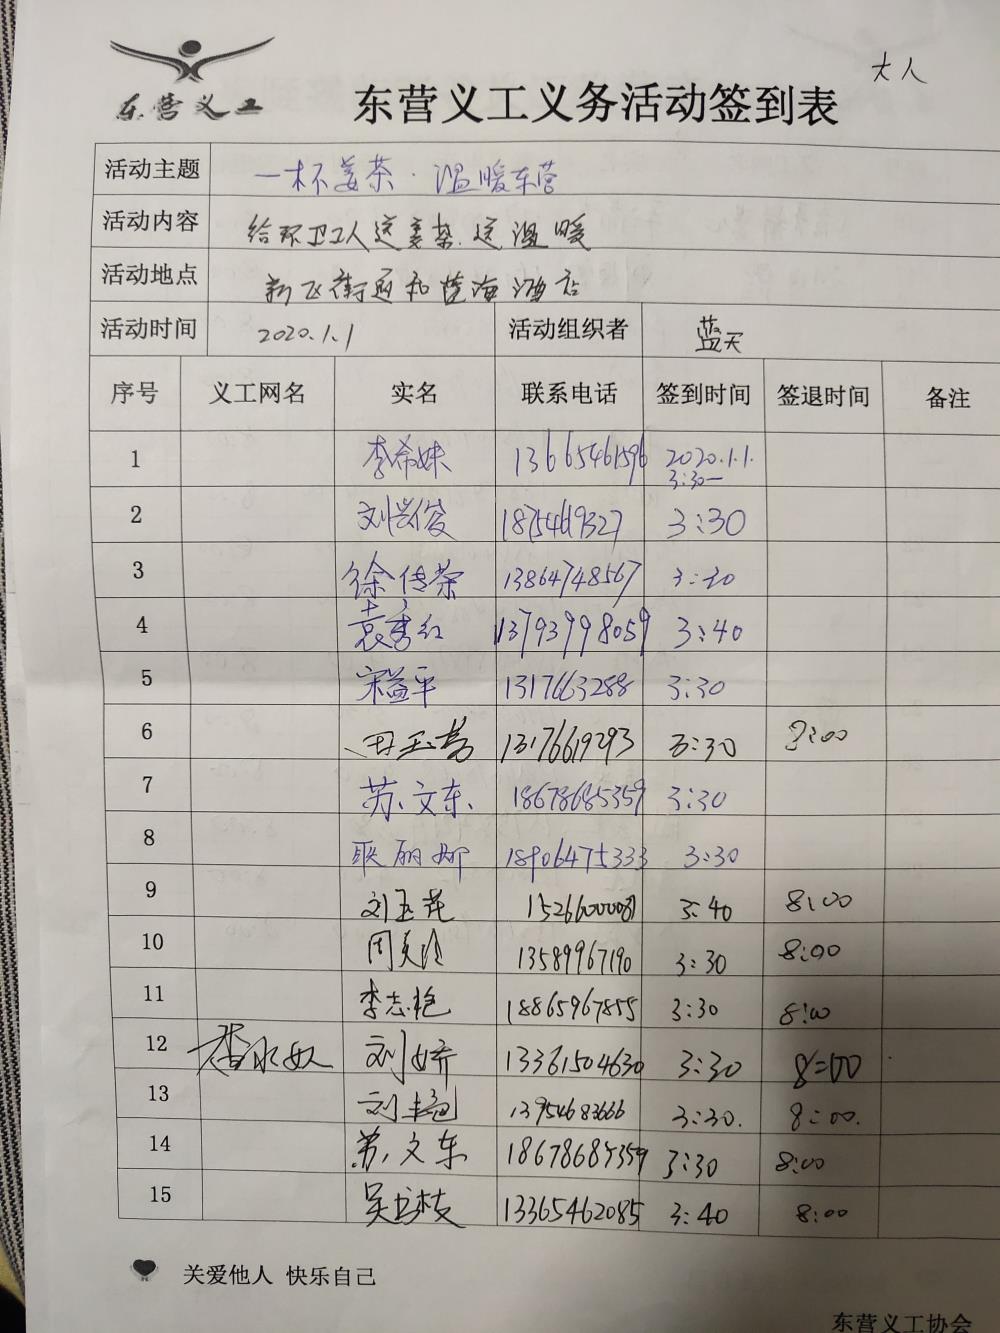 大人
东营义工
东营义工义务活动签到表
活动主题 一杯姜茶·温暖东营
活动内容 给环卫工人送姜茶.送温暖
活动地点 新飞街面和蓝海酒店
活动时间 2020.1.1 活动组织者 蓝天
序号 义工网名 实名 联系电话 签到时间 签退时间 备注
1 李希妹 13665461596 2020.1.1.
3:30—
2 刘兴俊 1875469327 3:30
3 徐传荣 13864748567 3:30
4 袁秀红 13793998059 3:40
5 宋益平 1317663288 3:30
6 田玉芳 13176619293 3:30 8:00
7 苏文东 18678685359 3:30
8 耿丽娜 18906475333 3:30
9 刘玉花 15266000081 3:40 8:00
10 周美玲 13589967190 3:30 8:00
11 李志艳 18865967855 3:30 8:00
12 香水女人 刘娇 13361504630 3:30 8:00
13 刘 13954683666 3:30. 8:00.
14 苏文东 18678685359 3:30 8:00
15 吴拉枝 13365462085 3:40 8:00
关爱他人 快乐自己
东营义工协会